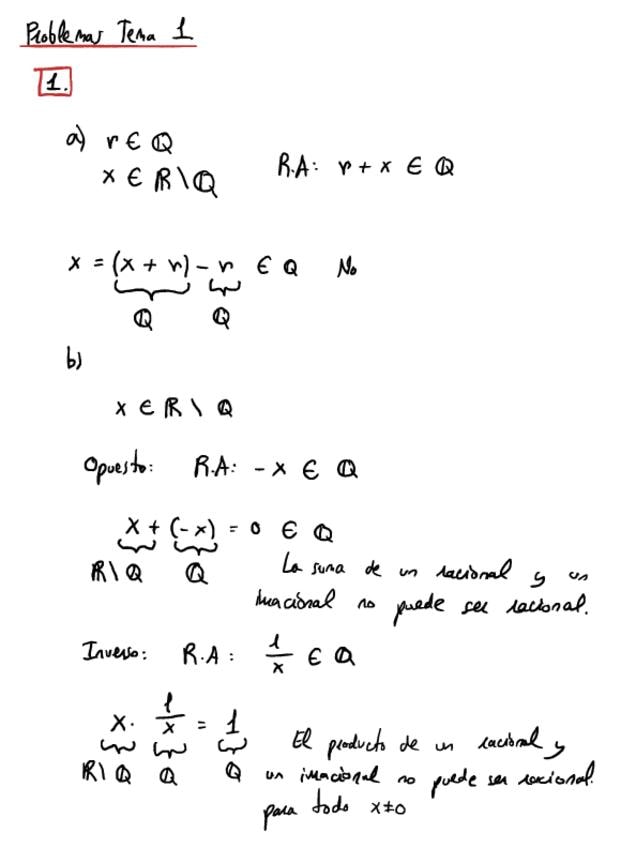 Problemas Tema 1
1.
a) r ∈ ℚ
x ∈ ℝ \ ℚ
R.A: r + x ∈ ℚ
x = (x + r) - r ∈ ℚ No
ℚ ℚ
b)
x ∈ ℝ \ ℚ
Opuesto: R.A: - x ∈ ℚ
x + (-x) = 0 ∈ ℚ
ℝ \ ℚ ℚ
La suma de un racional y un
irracional no puede ser racional.
Inverso: R.A: 1/x ∈ ℚ
x · 1/x = 1
ℝ \ ℚ ℚ ℚ
El producto de un racional y
un irracional no puede ser racional.
para todo x≠0